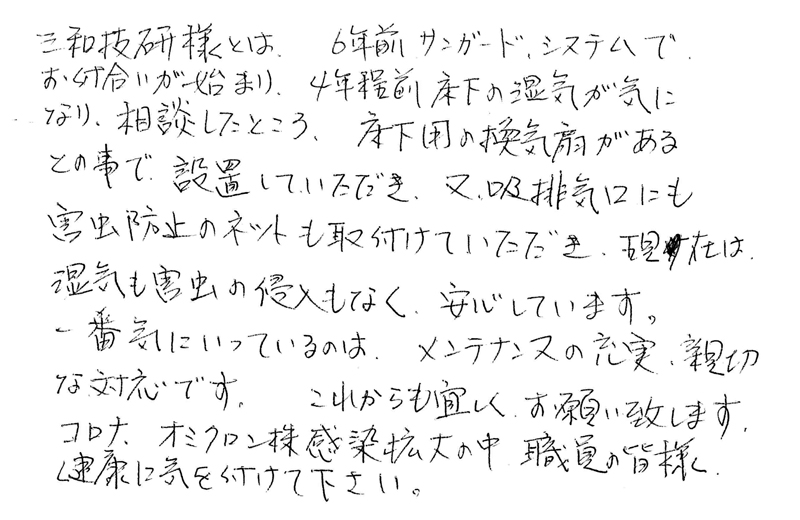 三和技研様とは、6年前サンガード、システムで、
お付合いが始まり、4年程前床下の湿気が気に
なり、相談したところ、床下用の換気扇がある
との事で、設置していただき、又、吸排気口にも
害虫防止のネットも取付けていただき、現在は、
湿気も害虫の侵入もなく、安心しています。
一番気にいっているのは、メンテナンスの充実、親切
な対応です。これからも宜しく、お願い致します。
コロナ、オミクロン株感染拡大の中 職員の皆様く
健康に気を付けて下さい。